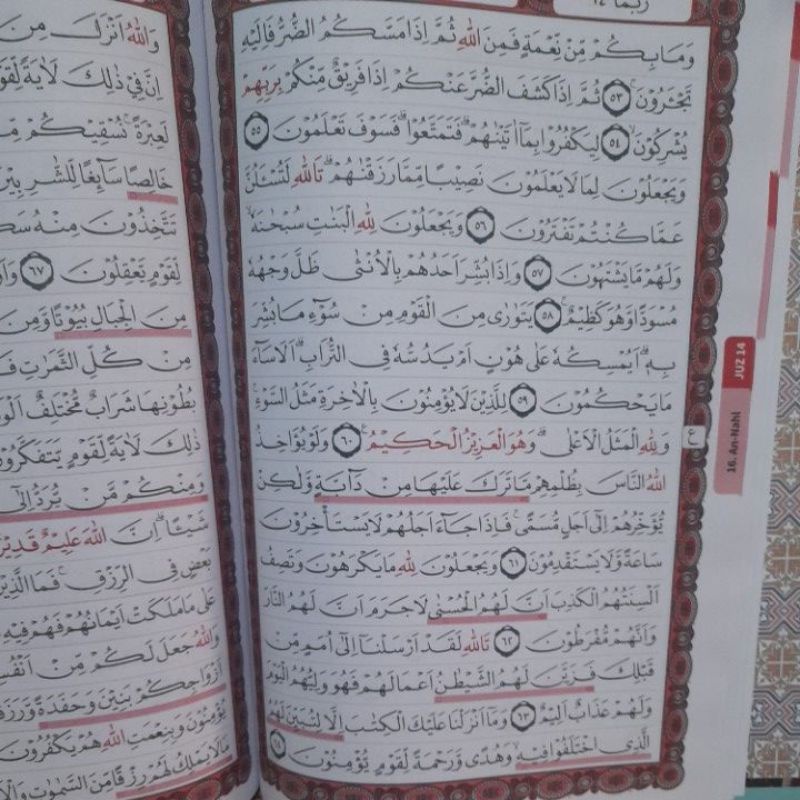 ربما ١٤
وَمَا بِكُمْ مِّنْ نِّعْمَةٍ فَمِنَ اللّٰهِ ثُمَّ اِذَا مَسَّكُمُ الضُّرُّ فَاِلَيْهِ
تَجْـَٔرُوْنَۚ ٥٣ ثُمَّ اِذَا كَشَفَ الضُّرَّ عَنْكُمْ اِذَا فَرِيْقٌ مِّنْكُمْ بِرَبِّهِمْ
يُشْرِكُوْنَۙ ٥٤ لِيَكْفُرُوْا بِمَآ اٰتَيْنٰهُمْۗ فَتَمَتَّعُوْاۗ فَسَوْفَ تَعْلَمُوْنَ ٥٥
وَيَجْعَلُوْنَ لِمَا لَا يَعْلَمُوْنَ نَصِيْبًا مِّمَّا رَزَقْنٰهُمْۗ تَاللّٰهِ لَتُسْـَٔلُنَّ
عَمَّا كُنْتُمْ تَفْتَرُوْنَ ٥٦ وَيَجْعَلُوْنَ لِلّٰهِ الْبَنٰتِ سُبْحٰنَهٗۙ
وَلَهُمْ مَّا يَشْتَهُوْنَ ٥٧ وَاِذَا بُشِّرَ اَحَدُهُمْ بِالْاُنْثٰى ظَلَّ وَجْهُهٗ
مُسْوَدًّا وَّهُوَ كَظِيْمٌۚ ٥٨ يَتَوَارٰى مِنَ الْقَوْمِ مِنْ سُوْۤءِ مَا بُشِّرَ
بِهٖۗ اَيُمْسِكُهٗ عَلٰى هُوْنٍ اَمْ يَدُسُّهٗ فِى التُّرَابِۗ اَلَا سَاۤءَ
مَا يَحْكُمُوْنَ ٥٩ لِلَّذِيْنَ لَا يُؤْمِنُوْنَ بِالْاٰخِرَةِ مَثَلُ السَّوْءِۚ
وَلِلّٰهِ الْمَثَلُ الْاَعْلٰىۗ وَهُوَ الْعَزِيْزُ الْحَكِيْمُ ٦٠ وَلَوْ يُؤَاخِذُ
اللّٰهُ النَّاسَ بِظُلْمِهِمْ مَّا تَرَكَ عَلَيْهَا مِنْ دَاۤبَّةٍ وَّلٰكِنْ
يُّؤَخِّرُهُمْ اِلٰٓى اَجَلٍ مُّسَمًّىۚ فَاِذَا جَاۤءَ اَجَلُهُمْ لَا يَسْتَأْخِرُوْنَ
سَاعَةً وَّلَا يَسْتَقْدِمُوْنَ ٦١ وَيَجْعَلُوْنَ لِلّٰهِ مَا يَكْرَهُوْنَ وَتَصِفُ
اَلْسِنَتُهُمُ الْكَذِبَ اَنَّ لَهُمُ الْحُسْنٰى لَا جَرَمَ اَنَّ لَهُمُ النَّارَ
وَاَنَّهُمْ مُّفْرَطُوْنَ ٦٢ تَاللّٰهِ لَقَدْ اَرْسَلْنَآ اِلٰٓى اُمَمٍ مِّنْ
قَبْلِكَ فَزَيَّنَ لَهُمُ الشَّيْطٰنُ اَعْمَالَهُمْ فَهُوَ وَلِيُّهُمُ الْيَوْمَ
وَلَهُمْ عَذَابٌ اَلِيْمٌ ٦٣ وَمَآ اَنْزَلْنَا عَلَيْكَ الْكِتٰبَ اِلَّا لِتُبَيِّنَ لَهُمُ
الَّذِى اخْتَلَفُوْا فِيْهِۙ وَهُدًى وَّرَحْمَةً لِّقَوْمٍ يُّؤْمِنُوْنَ ٦٤
ع
JUZ 14
16. An-Nahl
وَاللّٰهُ اَنْزَلَ مِنَ
اِنَّ فِيْ ذٰلِكَ لَاٰيَةً لِّقَوْ
لَعِبْرَةًۚ نُسْقِيْكُمْ
خَالِصًا سَاۤىِٕغًا لِّلشّٰرِبِيْنَ
تَتَّخِذُوْنَ مِنْهُ سَكَ
لِّقَوْمٍ يَّعْقِلُوْنَ ٦٧ وَاَوْ
مِنَ الْجِبَالِ بُيُوْتًا وَّمِنَ
مِنْ كُلِّ الثَّمَرٰتِ فَ
بُطُوْنِهَا شَرَابٌ مُّخْتَلِفٌ اَلْوَ
ذٰلِكَ لَاٰيَةً لِّقَوْمٍ يَّتَفَكَّرُوْنَ
وَمِنْكُمْ مَّنْ يُّرَدُّ اِلٰٓى
شَيْـًٔاۗ اِنَّ اللّٰهَ عَلِيْمٌ قَدِيْرٌ
بَعْضٍ فِى الرِّزْقِۚ فَمَا الَّذِيْنَ
عَلٰى مَا مَلَكَتْ اَيْمَانُهُمْ فَهُمْ فِيْهِ
وَاللّٰهُ جَعَلَ لَكُمْ مِّنْ اَنْفُسِ
اَزْوَاجِكُمْ بَنِيْنَ وَحَفَدَةً وَّرَزَ
يُؤْمِنُوْنَ وَبِنِعْمَتِ اللّٰهِ هُمْ يَكْفُرُوْنَ
مَا لَا يَمْلِكُ لَهُمْ رِزْقًا مِّنَ السَّمٰوٰتِ وَالْاَ